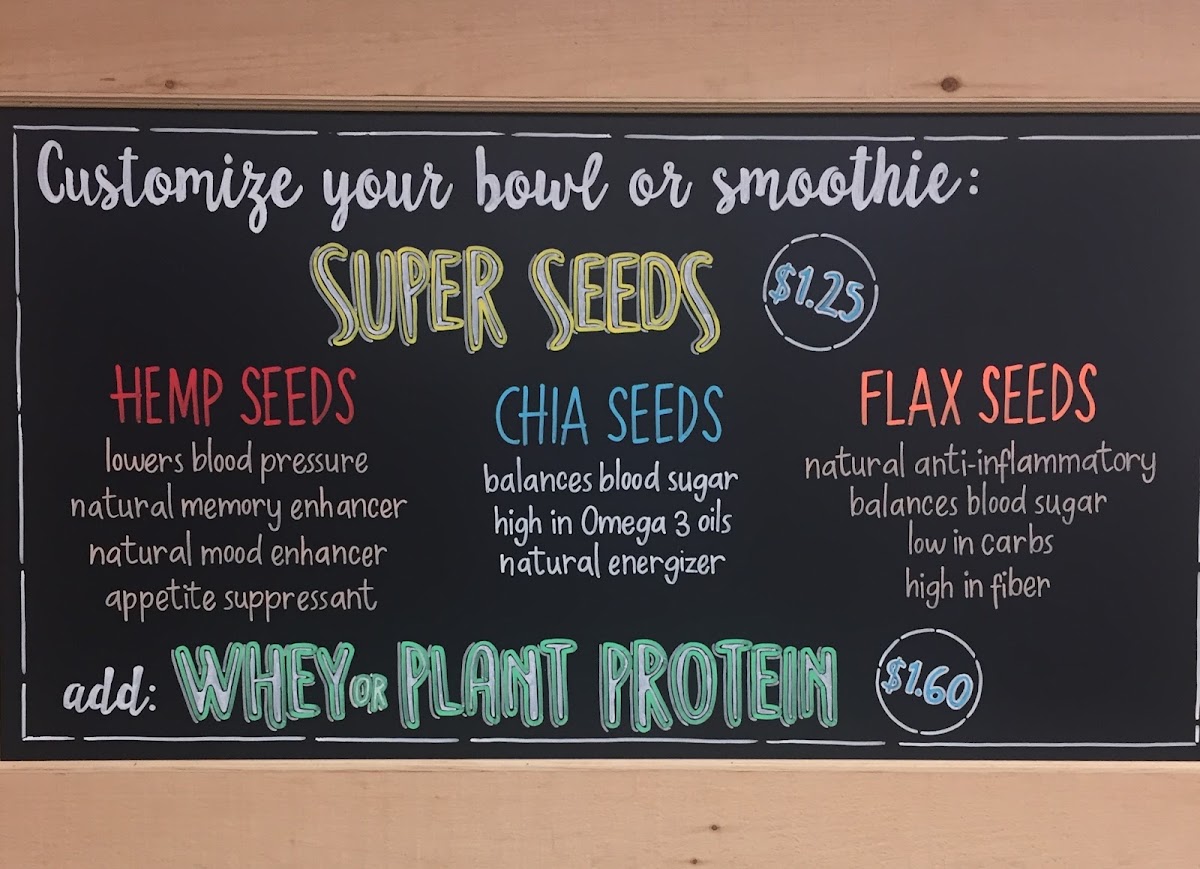 Customize your bowl or smoothie:
SUPER SEEDS $1.25
HEMP SEEDS
lowers blood pressure
natural memory enhancer
natural mood enhancer
appetite suppressant
CHIA SEEDS
balances blood sugar
high in Omega 3 oils
natural energizer
FLAX SEEDS
natural anti-inflammatory
balances blood sugar
low in carbs
high in fiber
add: WHEY OR PLANT PROTEIN $1.60